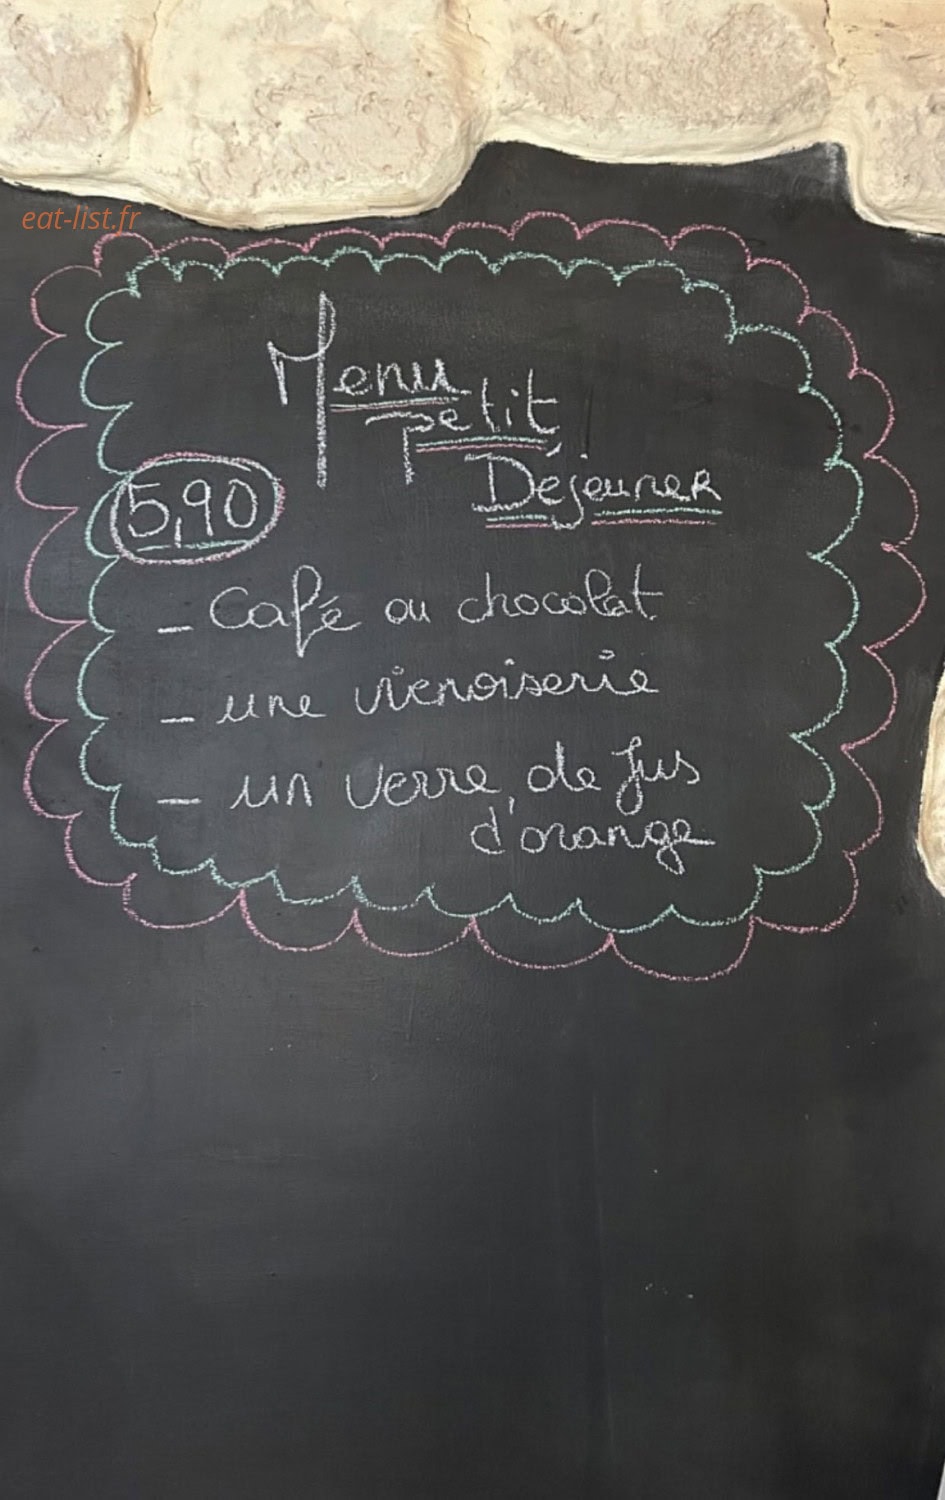 eat-list.fr
Menu
petit
Déjeuner
5,90
- Café ou chocolat
- une viennoiserie
- un verre de Jus
d'orange